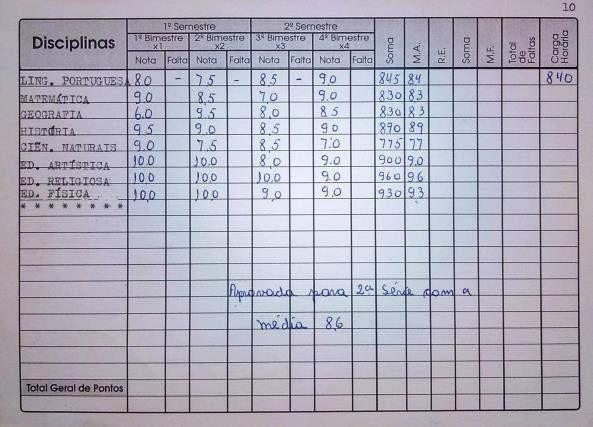 10
Disciplinas 1º Semestre 2º Semestre Soma M.A. R.E. Soma M.F. Total de Faltas Carga Horária
1º Bimestre x1 2º Bimestre x2 3º Bimestre x3 4º Bimestre x4
Nota Falta Nota Falta Nota Falta Nota Falta
LING. PORTUGUESA 8.0 - 7.5 - 8.5 - 9.0 845 84 840
MATEMÁTICA 9.0 8,5 7,0 9.0 830 83
GEOGRAFIA 6.0 9.5 8,0 8.5 830 83
HISTÓRIA 9.5 9.0 8.5 9.0 890 89
CIÊN. NATURAIS 9.0 7.5 8.5 7.0 775 77
ED. ARTÍSTICA 10.0 10.0 8.0 9.0 900 90
ED. RELIGIOSA 10.0 10.0 10.0 9.0 960 96
ED. FÍSICA 10,0 10.0 9,0 9,0 930 93
* * * * * * * *
Aprovada para 2ª série com a
média 8,6
Total Geral de Pontos